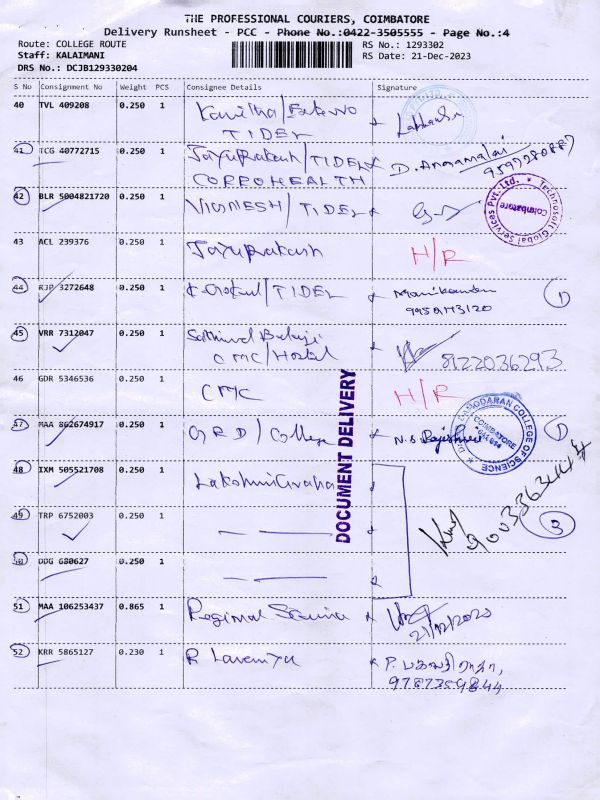 THE PROFESSIONAL COURIERS, COIMBATORE
Delivery Runsheet - PCC - Phone No.:0422-3505555 - Page No.:4
Route: COLLEGE ROUTE
RS No.: 1293302
Staff: KALAIMANI
RS Date: 21-Dec-2023
DRS No.: DCJB129330204
S No Consignment No Weight PCS Consignee Details Signature
40 TVL 409208 0.250 1 Kavitha/
TIDEL
41 TCG 40772715 0.250 1 Jayaprakash/TIDEL D. Annamalai
CORROHEALTH
42 BLR 5004821720 0.250 1 VIGNESH/TIDEL
Technosoft Global Services Pvt. Ltd. Coimbatore
43 ACL 239376 0.250 1 Jayaprakash H/R
44 RJP 3272648 0.250 1 K. Gokul/TIDEL Manikandan 1
9959173120
45 VRR 7312047 0.250 1 Balaji
CMC/Hostel 8122036293
46 GDR 5346536 0.250 1 CMC H/R
47 MAA 862674917 0.250 1 GRD/College N.S Rajeshwari 1
DAMODARAN COLLEGE OF SCIENCE
COIMBATORE
DOCUMENT DELIVERY
48 IXM 505521708 0.250 1
49 TRP 6752003 0.250 1 3
50 DDG 680627 0.250 1
51 MAA 106253437 0.865 1 Regional Science
21/12/2023
52 KRR 5865127 0.230 1 R Lavanya P.